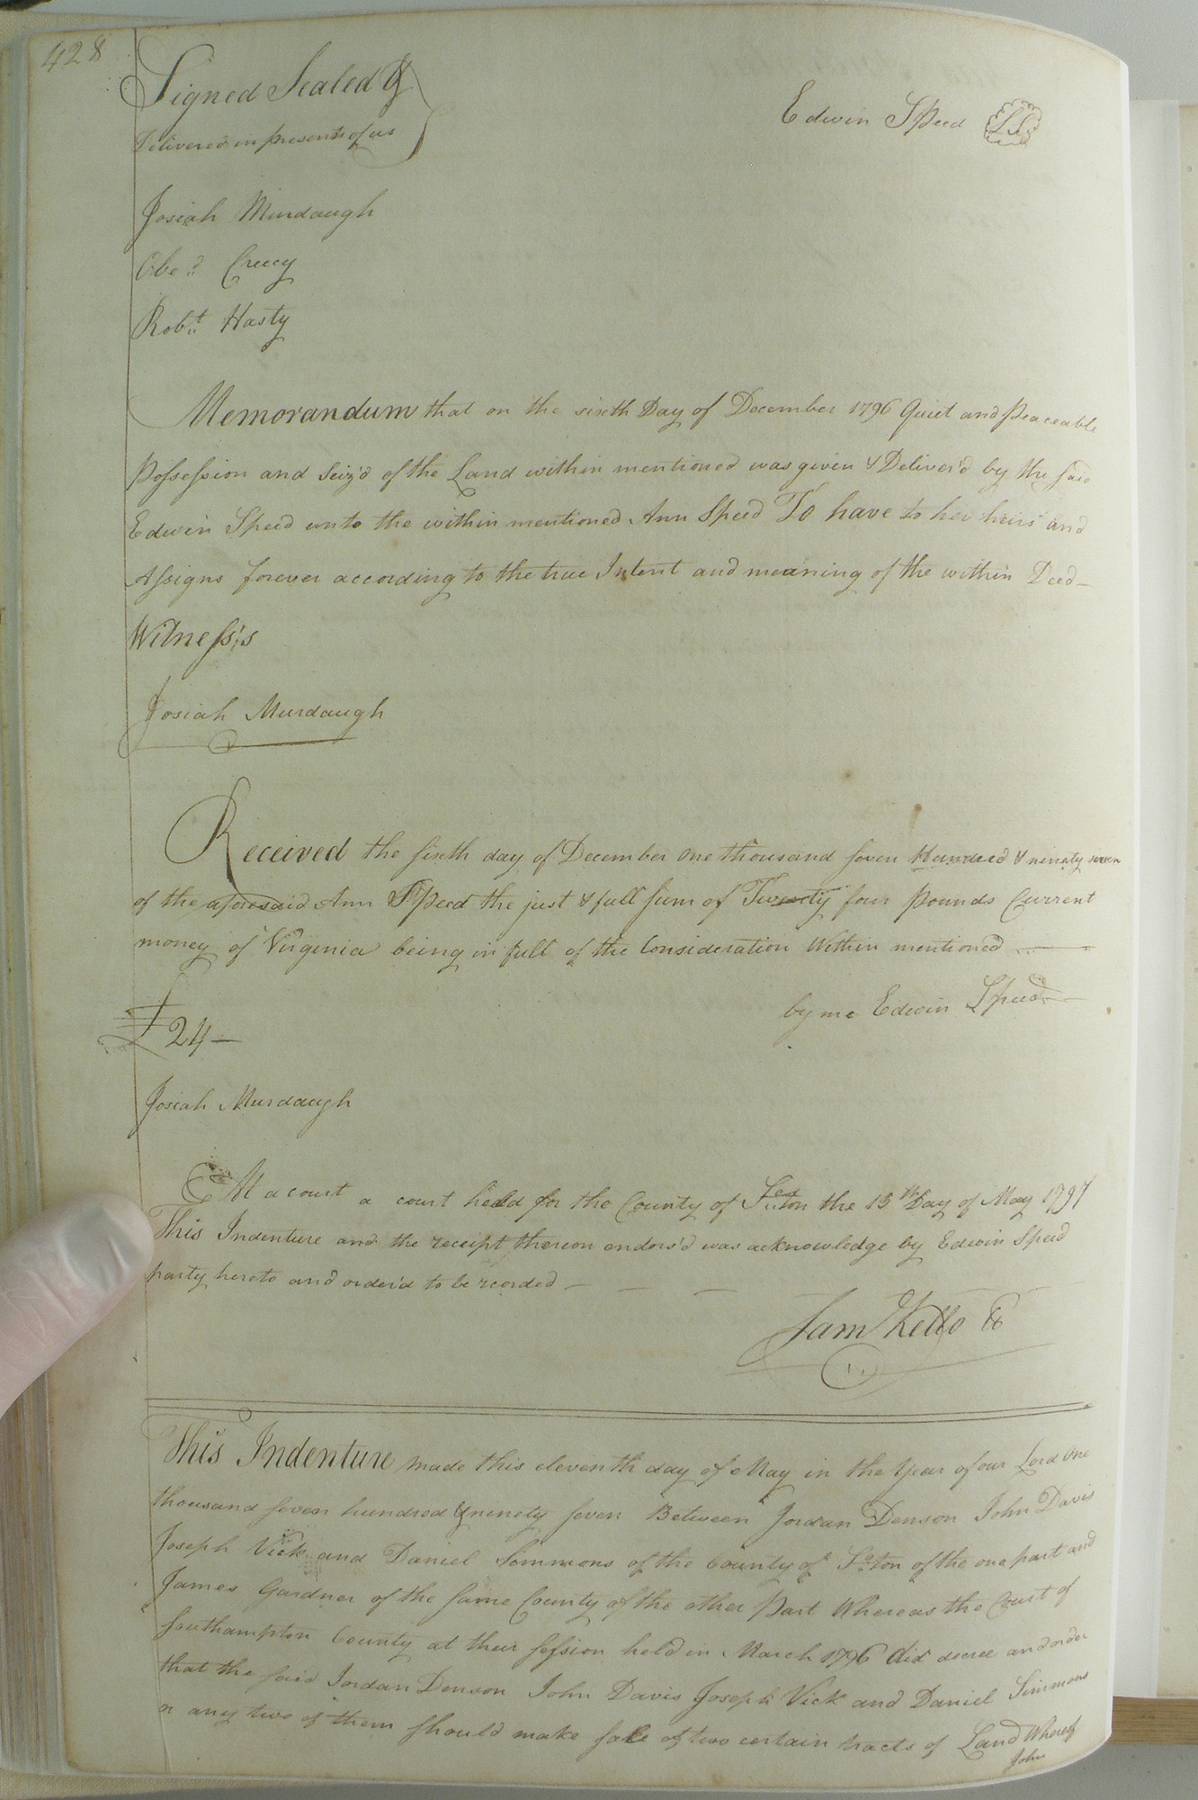 428
Signed Sealed &
Delivered in presents of us
Edwin Speed LS
Josiah Murdaugh
Obed. Creecy
Robt. Hasty
Memorandum that on the sixth Day of December 1796 Quiet and Peaceable
Possession and Seiz'd of the Land within mentioned was given & Deliver'd by the said
Edwin Speed unto the within mentioned Ann Speed To have to her heirs and
Assigns forever according to the true Intent and meaning of the within Deed—
Witness's
Josiah Murdaugh
Received the sixth day of December One thousand seven Hundred & ninety seven
of the aforesaid Ann Speed the just & full sum of Twenty four Pounds Current
money of Virginia being in full of the Consideration Within mentioned
by me Edwin Speed
£24—
Josiah Murdaugh
At a court a court held for the County of So.ton the 15th Day of May 1797
This Indenture and the receipt thereon endors'd was acknowledge by Edwin Speed
party hereto and order'd to be recorded — — —
Sam Kello Cc
This Indenture made this eleventh day of May in the Year of our Lord One
thousand seven hundred & ninety seven Between Jordan Denson John Davis
Joseph Vick and Daniel Simmons of the County of So.ton of the one part and
James Gardner of the same County of the other Part Whereas the Court of
Southampton County at their session held in March 1796 did decree and order
that the said Jordan Denson John Davis Joseph Vick and Daniel Simmons
or any two of them should make sale of two certain tracts of Land Whereof
John